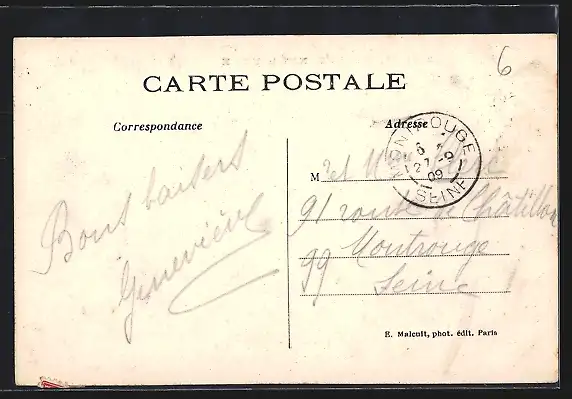 6
CARTE POSTALE
Correspondance
Adresse
MONTROUGE
27 - 9
09
(SEINE)
Bons baisers
Geneviève
M
91 route de Châtillon
99 Montrouge
Seine
E. Malcuit, phot. édit. Paris